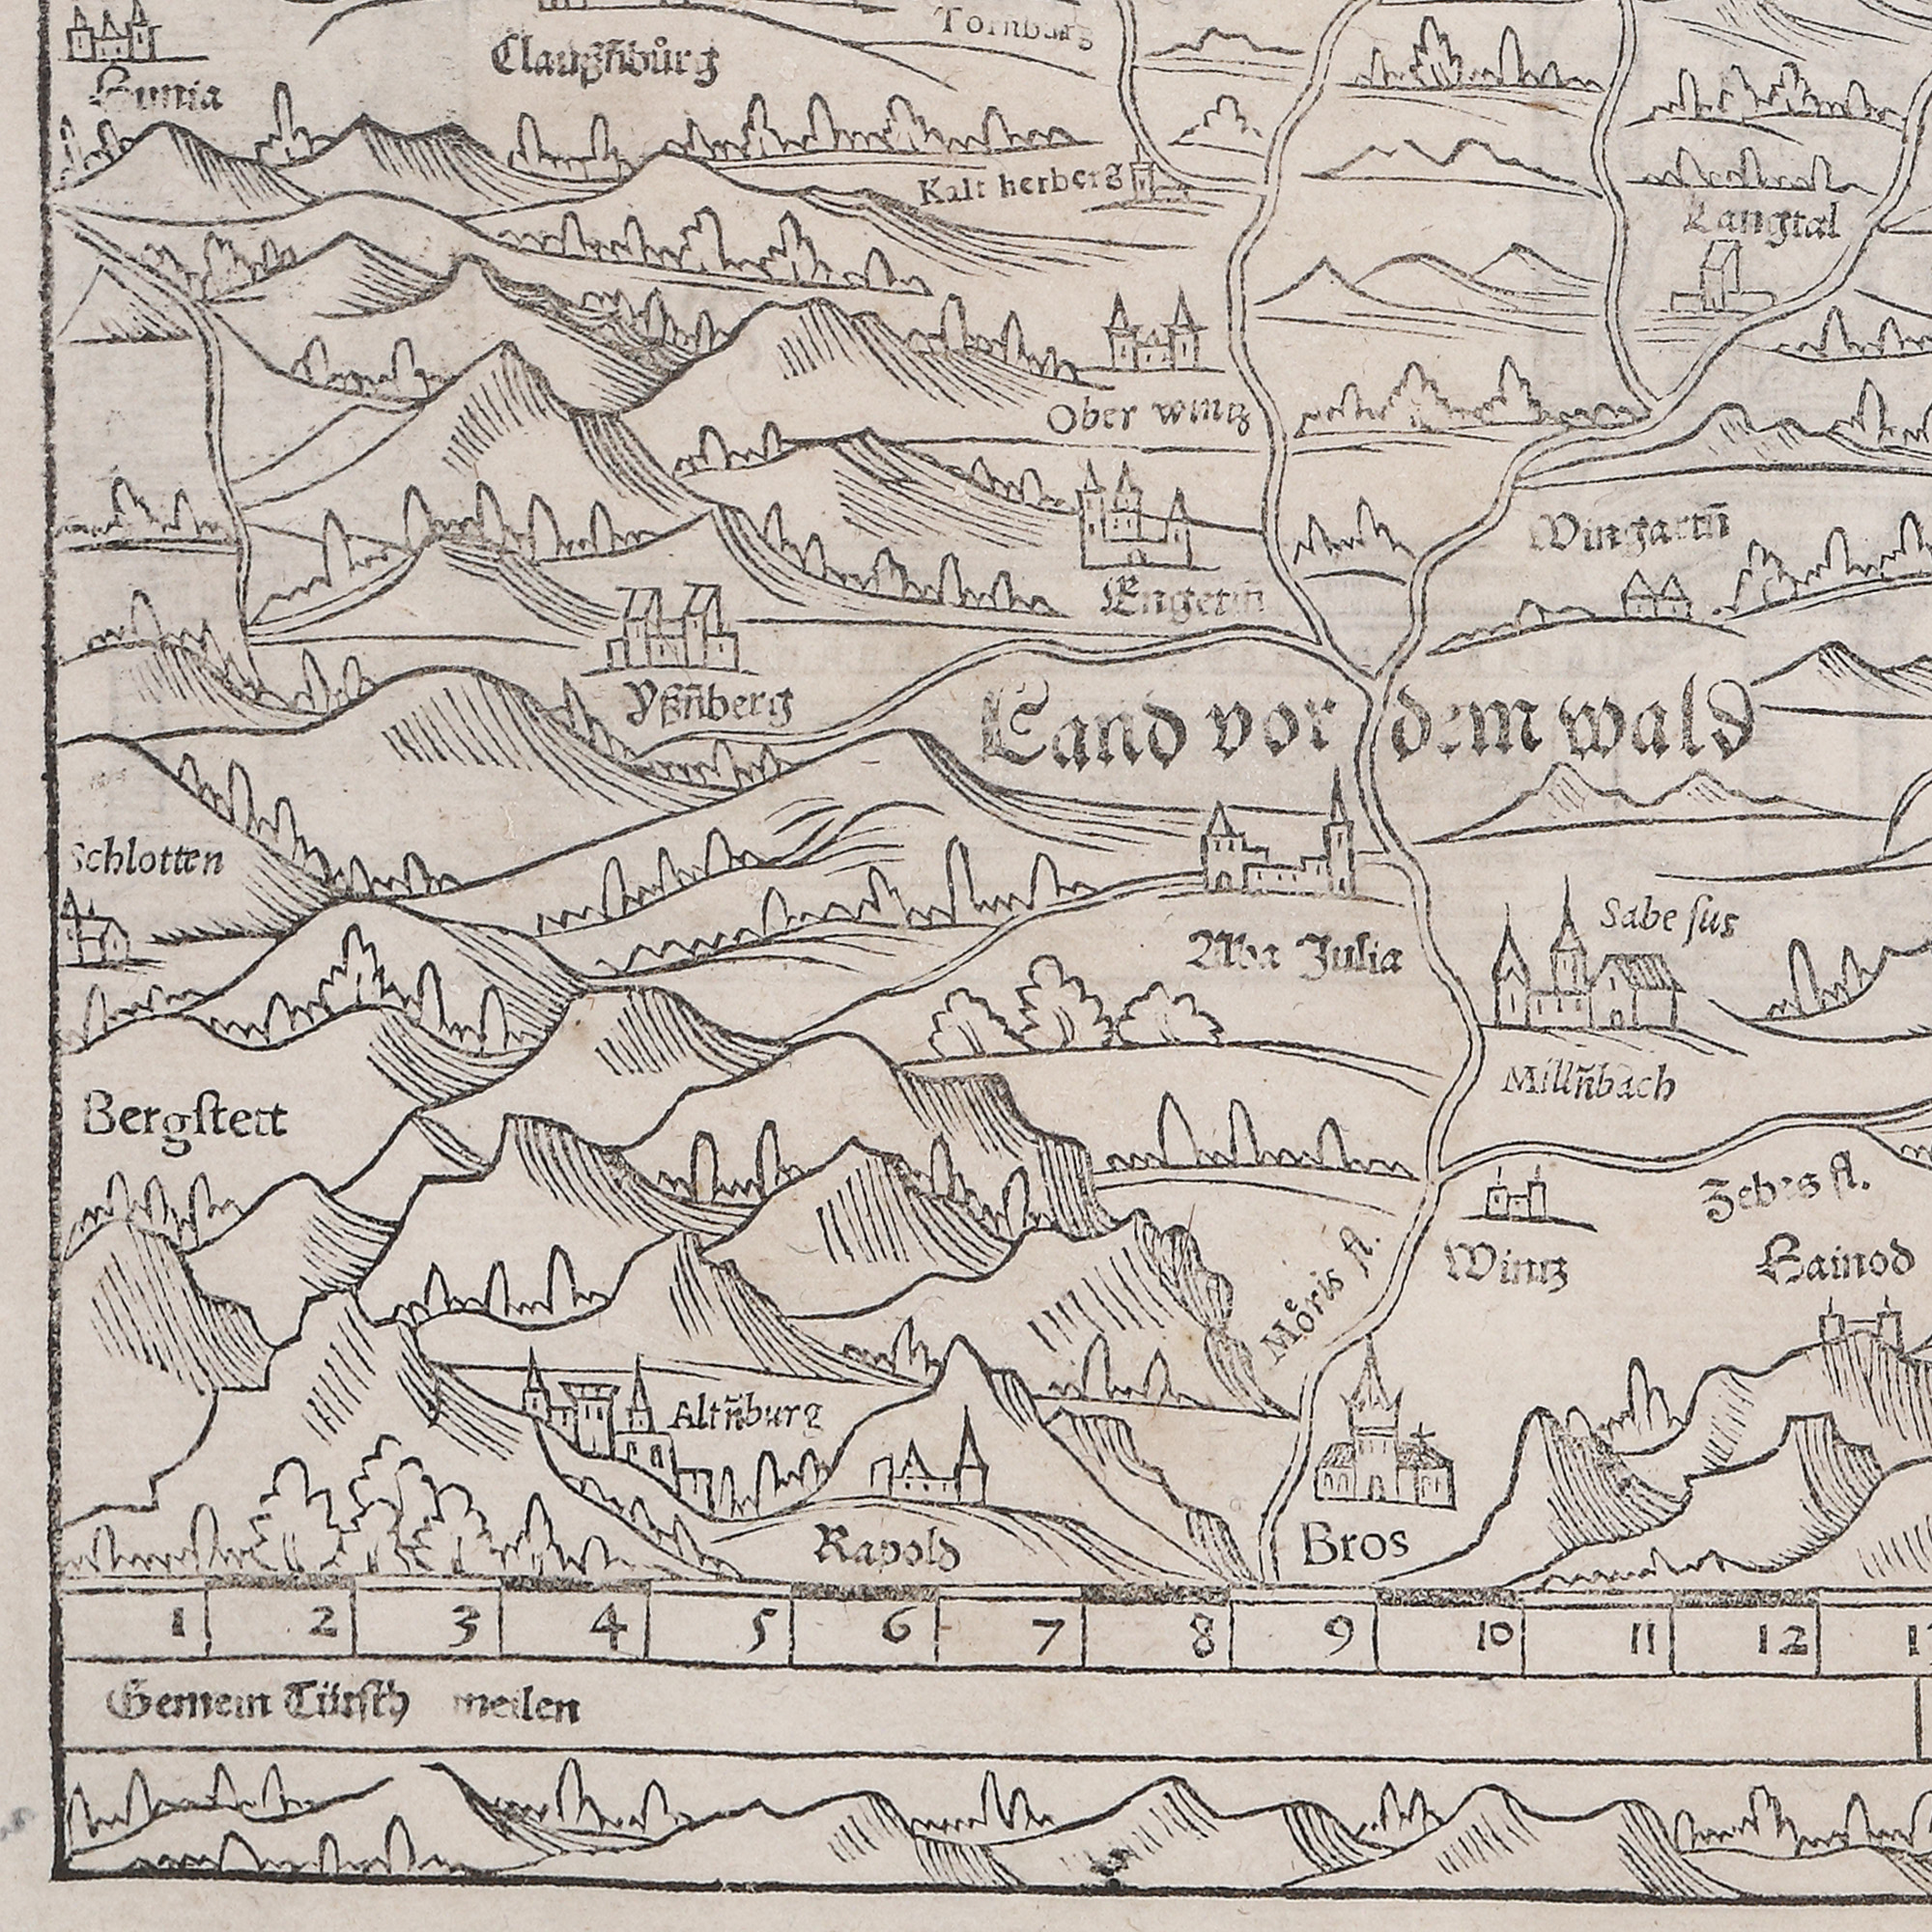 Tornburg
Clauß̃nbůrg
Hunia
Kalt herberg
Langtal
Ober wintz
Wingartñ
Engetiñ
Yßñberg
Land vor dem wald
Schlotten
Sabe ſus
Alba Julia
Millñbach
Bergſtett
Zebes fl.
Wintz
Hainod
Moͤris fl.
Altñburg
Rapold
Bros
1 2 3 4 5 6 7 8 9 10 11 12
Gemein Tütſch meilen